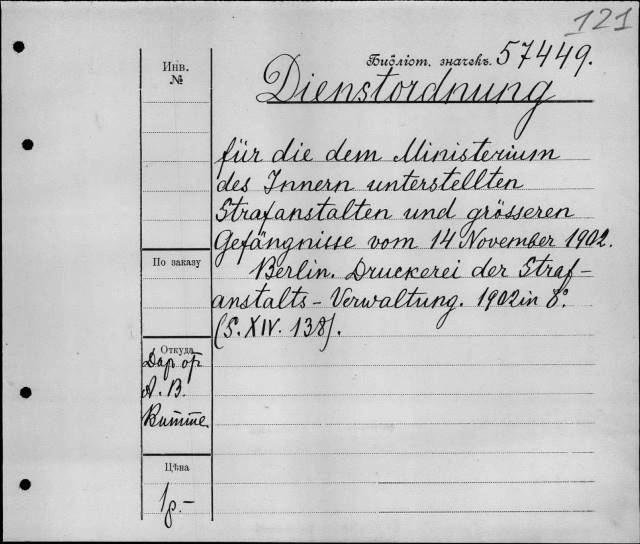 121
Библіот. значекъ. 57449.
Инв.
№
Dienstordnung
für die dem Ministerium
des Innern unterstellten
Strafanstalten und grösseren
Gefängnisse vom 14 November 1902.
Berlin. Druckerei der Straf-
anstalts-Verwaltung. 1902 in 8°.
(S. XIV. 138).
По заказу
Откуда
Дар от
А. В.
Витте
Цѣна
1р.-